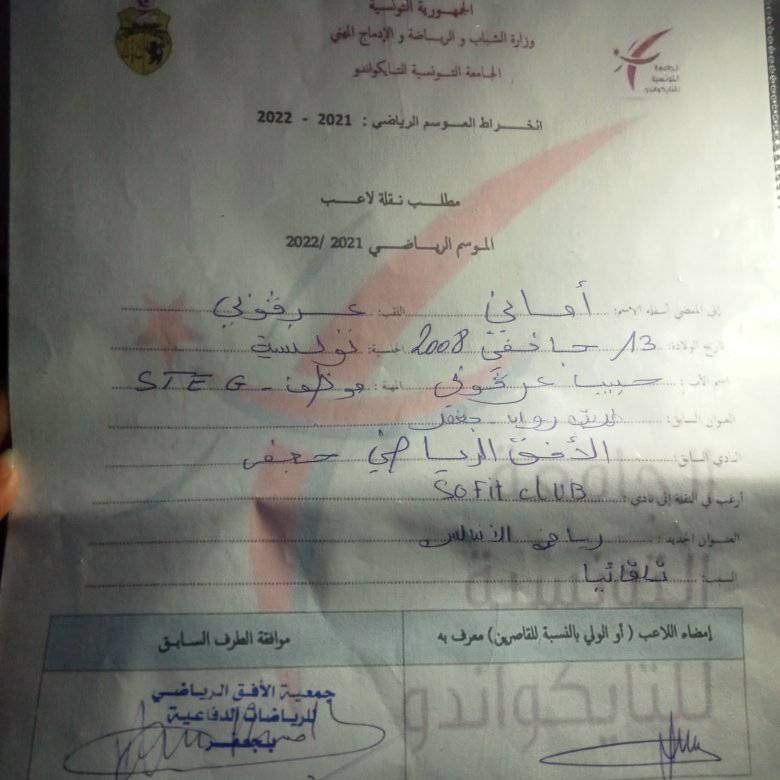 الجمهورية التونسية
وزارة الشباب و الرياضة و الإدماج المهني
الجامعة التونسية للتايكواندو
الجامعة
التونسية
للتايكواندو
انخراط الموسم الرياضي : 2021 - 2022
مطلب نقلة لاعب
الموسم الرياضي 2021 /2022
إني الممضي أسفله الاسم: أماني اللقب:
تاريخ الولادة: 13 جانفي 2008 الجنسية: تونسية
اسم الأب: المهنة: موظف - STEG
العنوان السابق:
النادي السابق: الأفق الرياضي
أرغب في النقلة إلى نادي: SOFit CLUB
العنوان الجديد: رياض الأندلس
السبب: تلقائيا
إمضاء اللاعب ( أو الولي بالنسبة للقاصرين) معرف به
موافقة الطرف السابق
جمعية الأفق الرياضي
للرياضات الدفاعية
بجعفر
الجامعة
التونسية
للتايكواندو